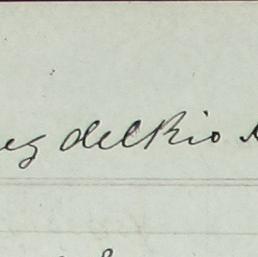 ez del Rio